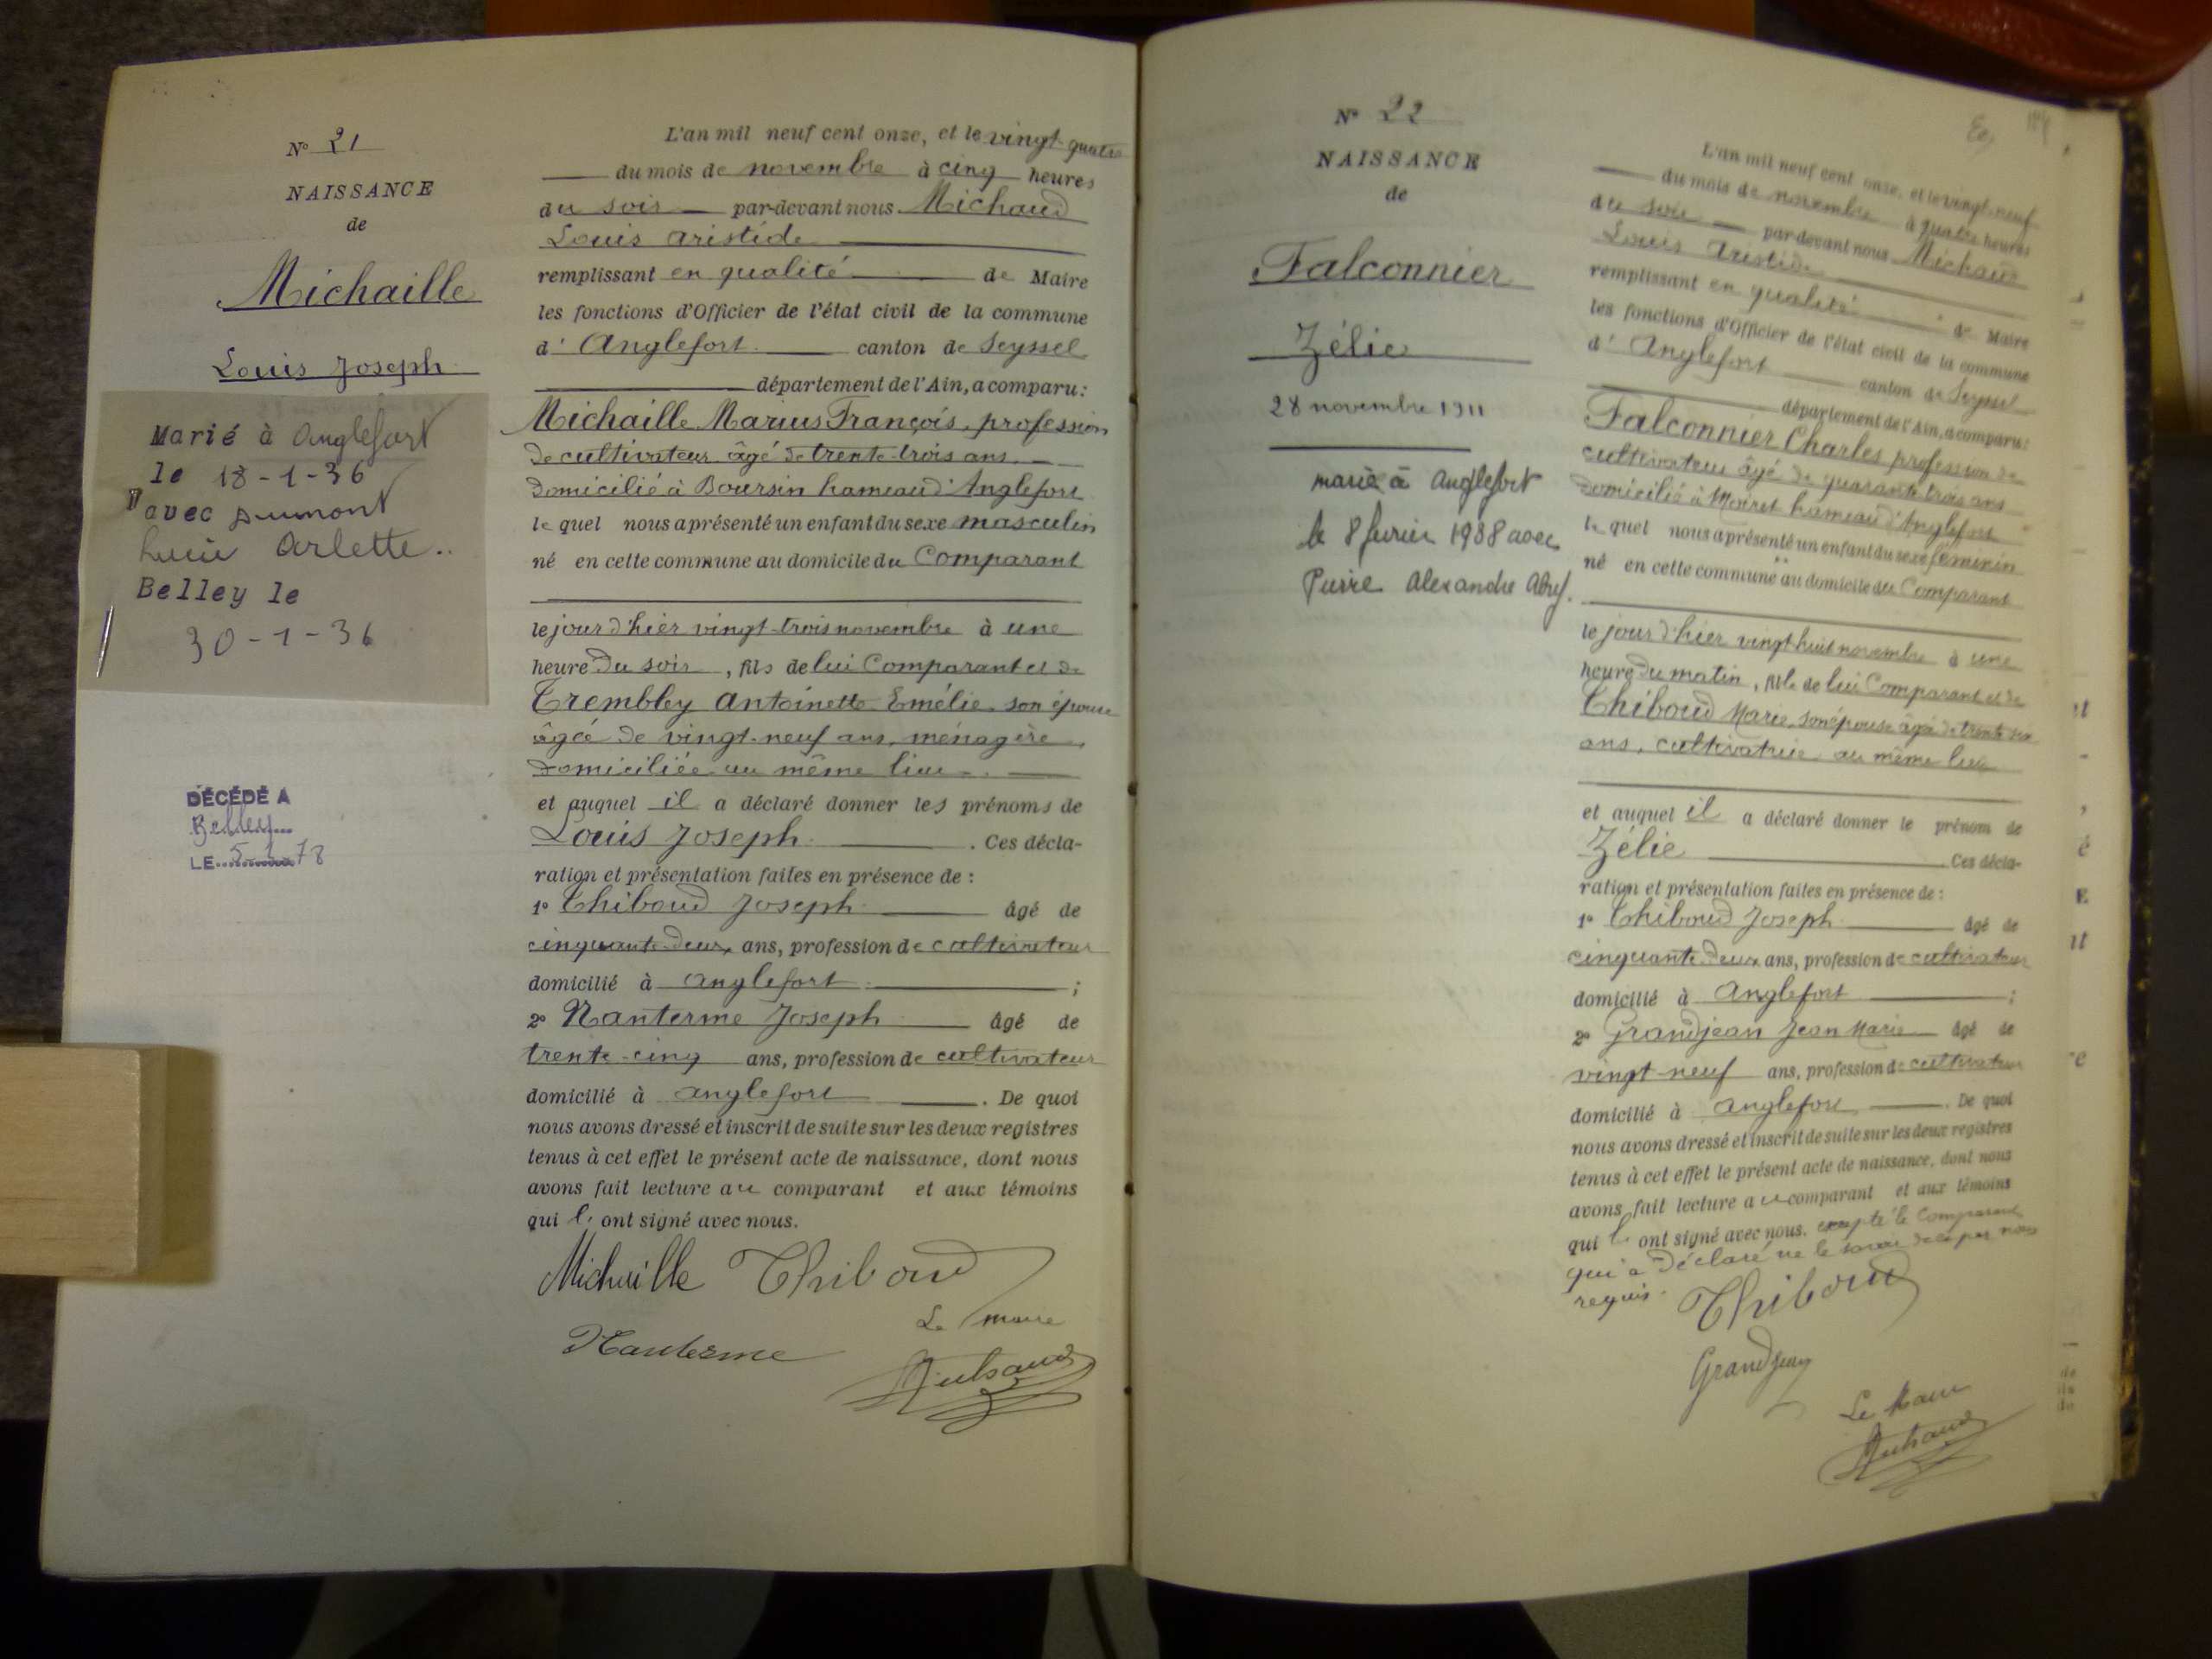 N° 21
NAISSANCE
de
Michaille
Louis Joseph
Marié à Anglefort
le 18-1-36
avec Dumont
Lucie Arlette..
Belley le
30-1-36
DÉCÉDÉ A
Belley
LE 5 78
L'an mil neuf cent onze, et le vingt-quatre
du mois de novembre à cinq heures
du soir par-devant nous Michaud
Louis Aristide
remplissant en qualité de Maire
les fonctions d'Officier de l'état civil de la commune
d' Anglefort canton de Seyssel
département de l'Ain, a comparu:
Michaille Marius François, profession
de cultivateur âgé de trente-trois ans
domicilié à Boursin hameau d'Anglefort
lequel nous a présenté un enfant du sexe masculin
né en cette commune au domicile du Comparant
le jour d'hier vingt-trois novembre à une
heure du soir, fils de lui Comparant et de
Trembley Antoinette Emélie son épouse
âgée de vingt-neuf ans, ménagère,
domiciliée au même lieu
et auquel il a déclaré donner les prénoms de
Louis Joseph. Ces décla-
ration et présentation faites en présence de :
1° Thiboud Joseph âgé de
cinquante-deux ans, profession de cultivateur
domicilié à Anglefort ;
2° Nanterme Joseph âgé de
trente-cinq ans, profession de cultivateur
domicilié à Anglefort. De quoi
nous avons dressé et inscrit de suite sur les deux registres
tenus à cet effet le présent acte de naissance, dont nous
avons fait lecture au comparant et aux témoins
qui l' ont signé avec nous.
Michaille Thiboud
Le maire
Nanterme
Michaud
N° 22
NAISSANCE
de
Falconnier
Zélie
28 novembre 1911
mariée à Anglefort
le 8 février 1938 avec
Pierre Alexandre
L'an mil neuf cent onze, et le vingt-neuf
du mois de novembre à quatre heures
du soir par-devant nous Michaud
Louis Aristide
remplissant en qualité de Maire
les fonctions d'Officier de l'état civil de la commune
d' Anglefort canton de Seyssel
département de l'Ain, a comparu:
Falconnier Charles profession de
cultivateur âgé de quarante-trois ans
domicilié à Moiret hameau d'Anglefort
lequel nous a présenté un enfant du sexe féminin
né en cette commune au domicile du Comparant
le jour d'hier vingt-huit novembre à une
heure du matin, fille de lui Comparant et de
Thiboud Marie son épouse âgée de trente-six
ans, cultivatrice au même lieu
et auquel il a déclaré donner le prénom de
Zélie Ces décla-
ration et présentation faites en présence de :
1° Thiboud Joseph âgé de
cinquante-deux ans, profession de cultivateur
domicilié à Anglefort ;
2° Grandjean Jean Marie âgé de
vingt-neuf ans, profession de cultivateur
domicilié à Anglefort. De quoi
nous avons dressé et inscrit de suite sur les deux registres
tenus à cet effet le présent acte de naissance, dont nous
avons fait lecture au comparant et aux témoins
qui l' ont signé avec nous. excepté le Comparant
qui a déclaré ne le savoir de ce par nous
requis.
Thiboud
Grandjean
Le Maire
Michaud